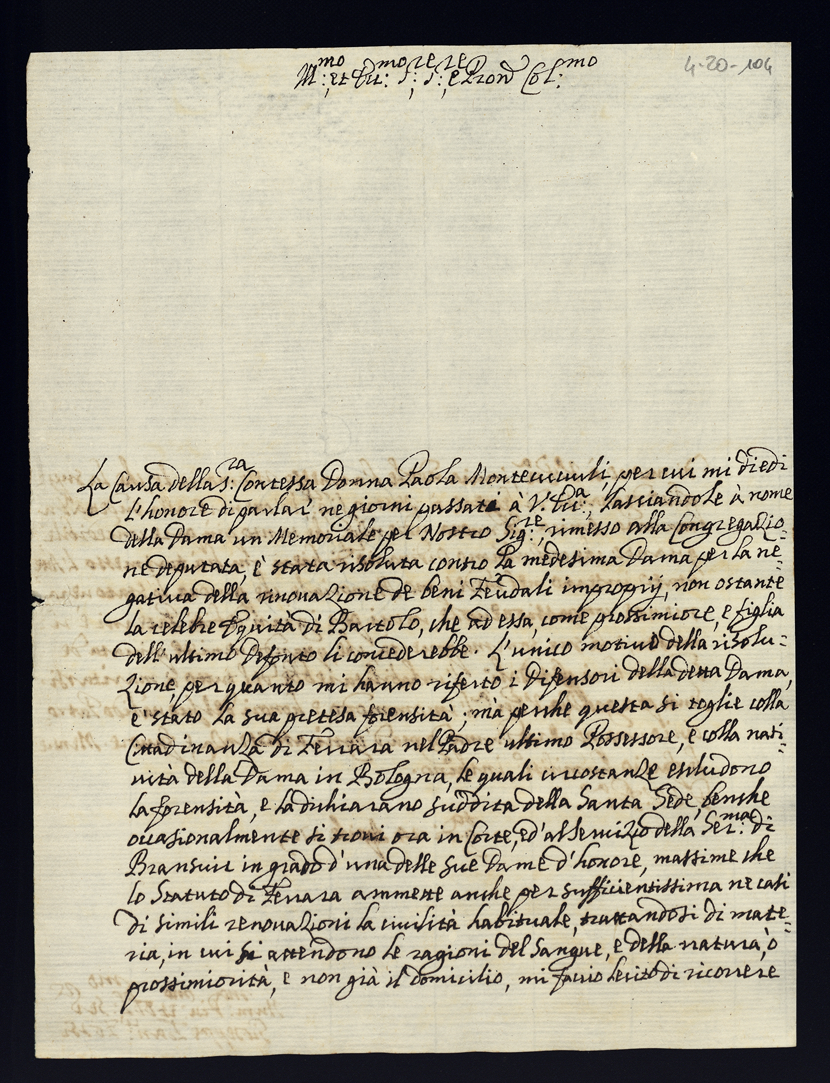 Ill.mo et Ecc.mo S.re S.re e Pron Col.mo
4-20-104
La Causa della S.ra Contessa Donna Paola Montecuccoli, per cui mi diedi
l'honore di parlar ne giorni passati à V. Ecc.a, lasciandole à nome
della Dama un Memoriale per Nostro Sig.re, rimesso alla Congregazio-
ne deputata, è stata risoluta contro la medesima Dama per la ne-
gativa della rinovazione de beni Feudali improprij, non ostante
la celebre Equità di Bartolo, che ad essa, come prossimiore, e figlia
dell'ultimo Defonto li concederebbe. L'unico motivo della risolu-
zione, per quanto mi hanno riferto i Difensori della detta Dama,
è stato la sua pretesa forensità; mà perche questa si toglie colla
Cittadinanza di Ferrara nel Padre ultimo Possessore, e colla nati-
vità della Dama in Bologna, le quali circostanze escludono
la forensità, e la dichiarano suddita della Santa Sede, benche
occasionalmente si trovi ora in Corte, ed'al servizio della Ser.ma di
Bransvic in grado d'una delle sue Dame d'honore, massime che
lo Statuto di Ferrara ammette anche per sufficientissima ne casi
di simili renovazioni la civilità habituale, trattandosi di mate-
ria, in cui si attendono le ragioni del Sangue, e della natura, ò
prossimiorità, e non già il domicilio, mi faccio lecito di ricorrere